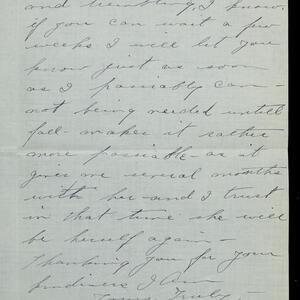 and troubling, I know,
if you can wait a few
weeks I will let you
know just as soon
as I possiably can—
not being needed untill
fall—makes it rather
more possiable—as it
gives me several months
with her—and I trust
in that time she will
be herself again—
Thanking you for your
kindness I Am
Yours Truly—